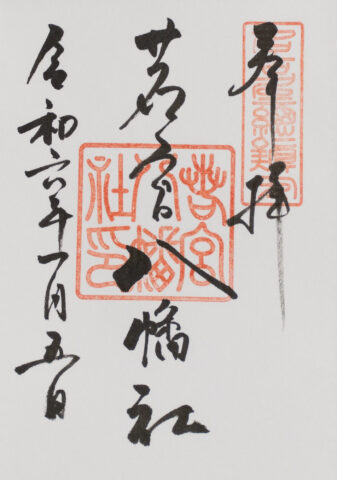 奉拝
若宮八幡社
令和六年一月五日
若宮
八幡
社印